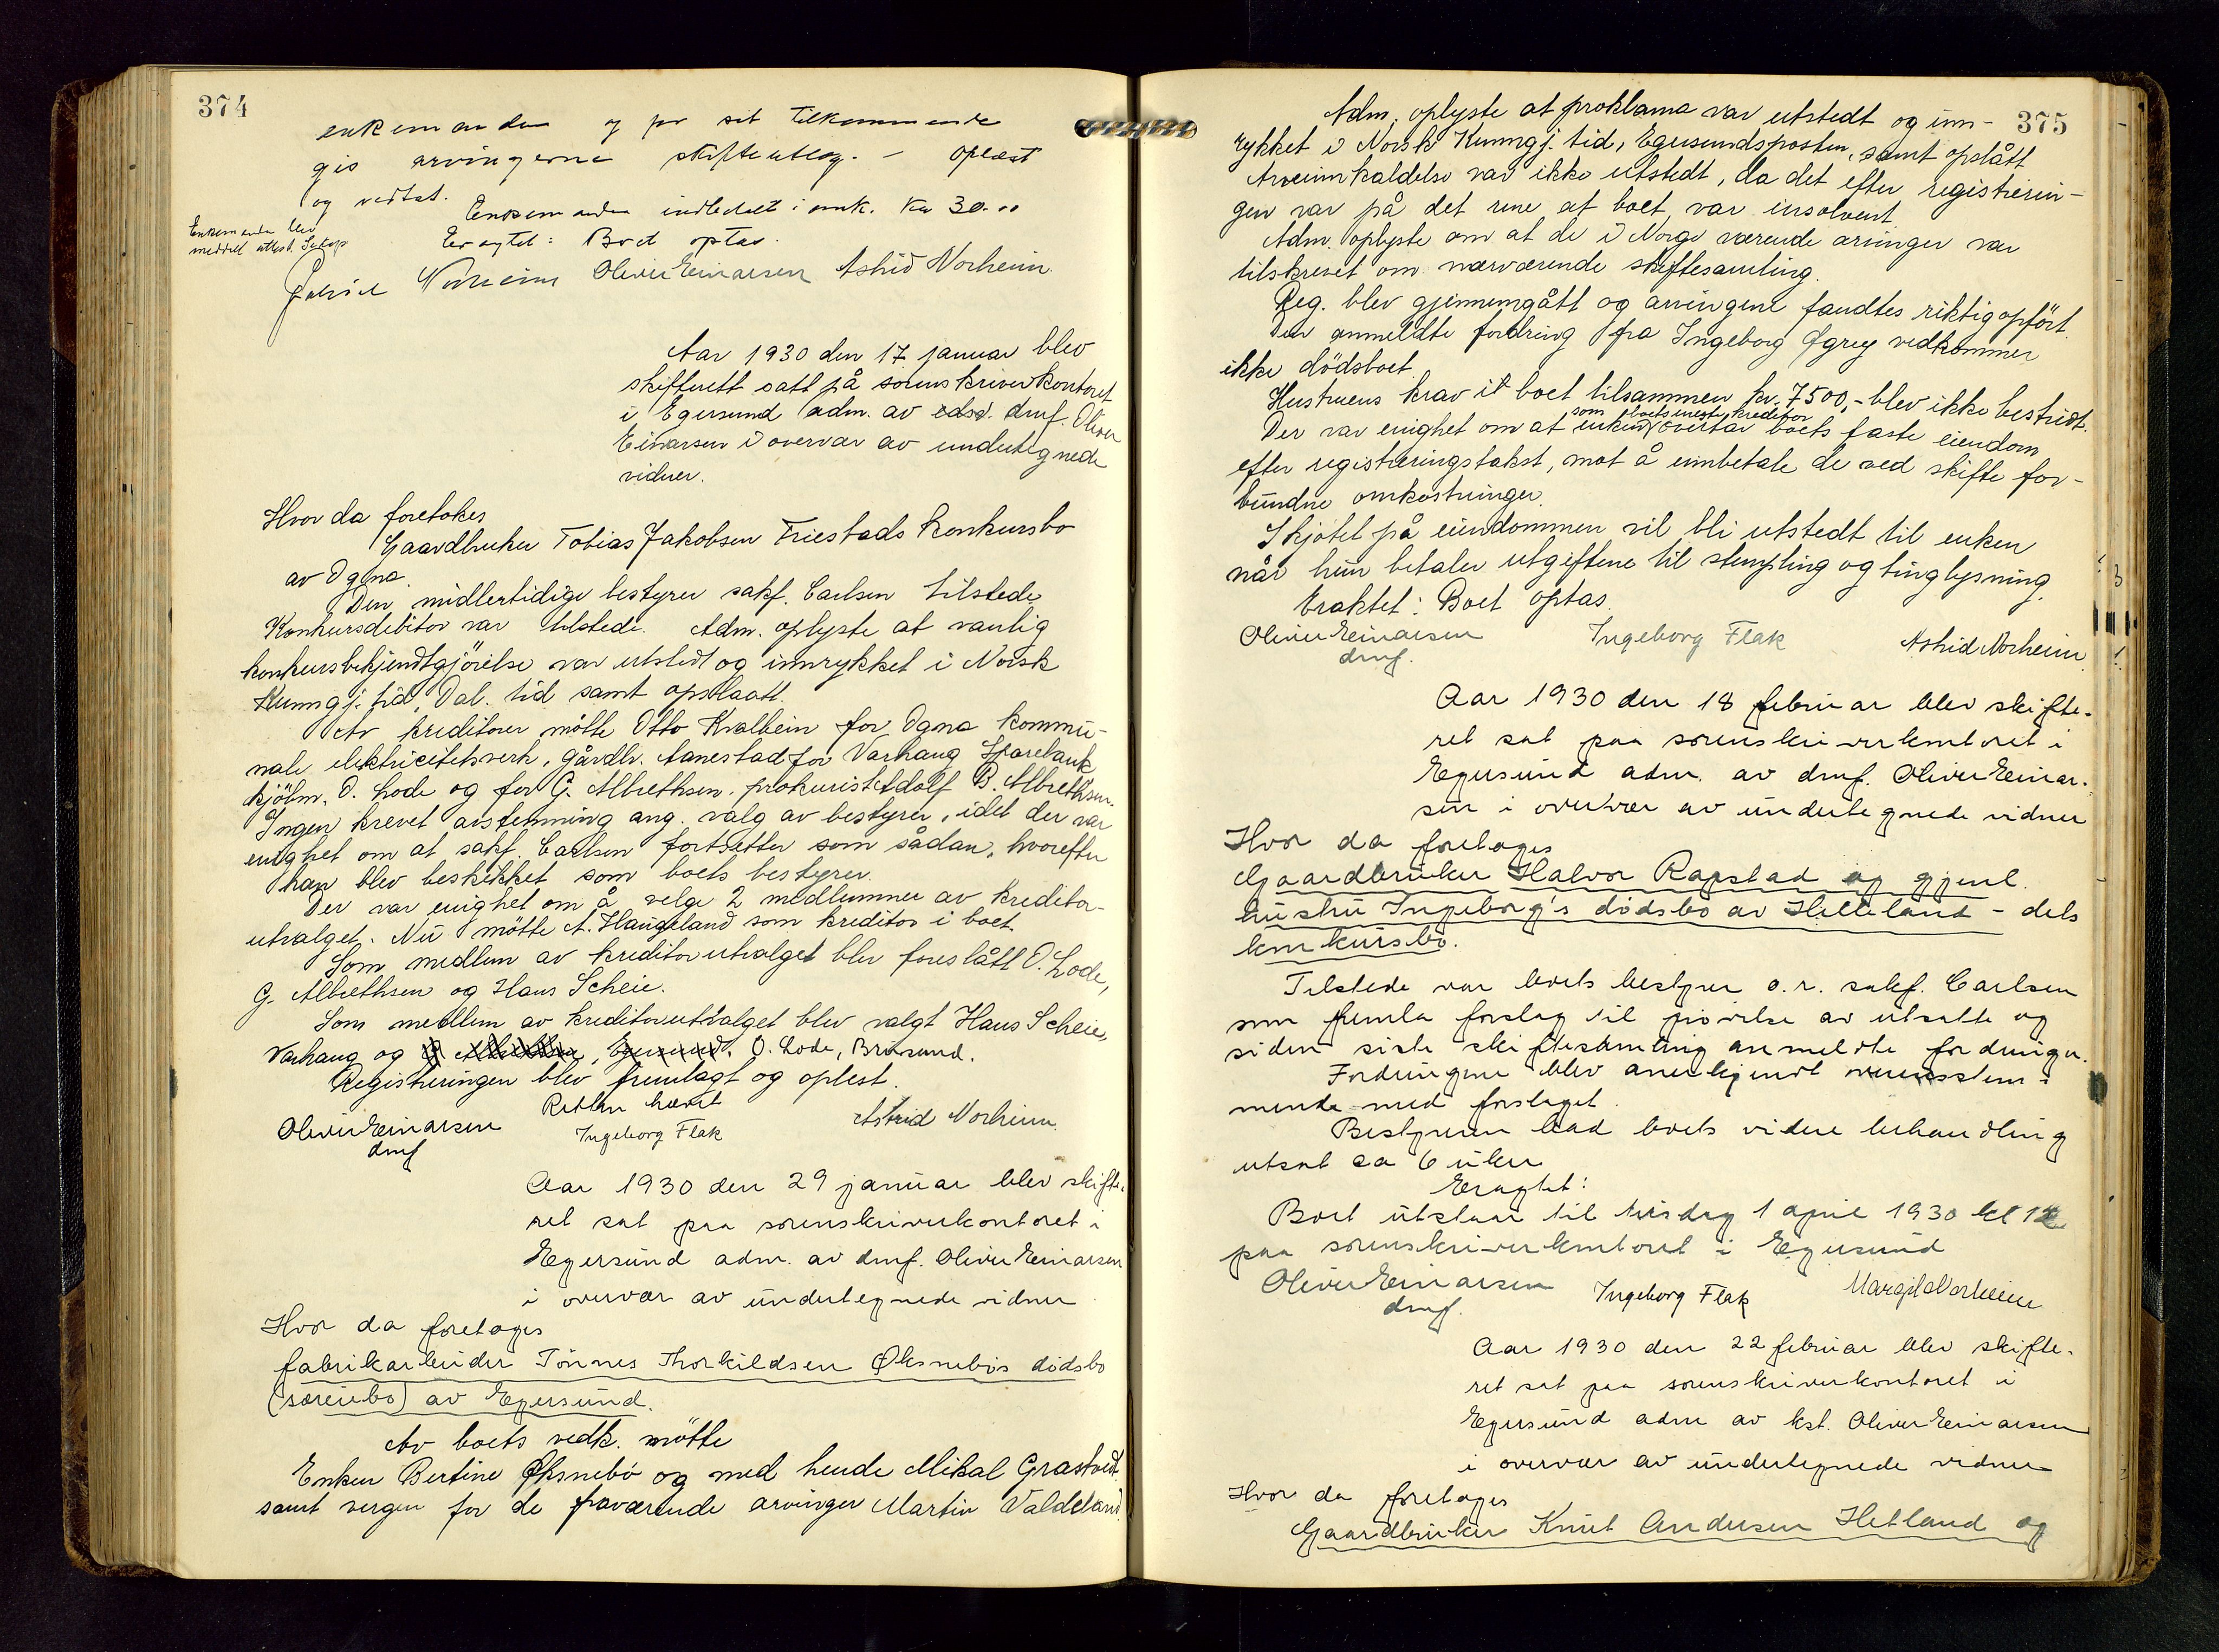 374
enkemanden og for sit tilkommende
gis arvingerne skifteutlæg. - Oplæst
og vedtat.
Enkemanden indbetalt i omk. kr 30.00
Enkemanden blev
meddelt attest.
Eragtet: Boet optas.
Gabriel Norheim Oliver Einarsen Astrid Norheim.
Aar 1930 den 17. januar blev
skifterett satt på sorenskriverkontoret
i Egersund adm. av edsv. dmf. Oliver
Einarsen i overvær av undertegnede
vidner.
Hvor da foretokes
Gaardbruker Tobias Jakobsen Friestads konkursbo
av Ogna.
Den midlertidige bestyrer sakf. Carlsen tilstede.
Konkursdebitor var tilstede. Adm. oplyste at vanlig
konkursbekjendtgjörelse var utstedt og innrykket i Norsk
Kunngj. tid, Dal. tid samt opslaatt.
Av kreditorer mötte Otto Kvalbein for Ogna kommu-
nale elektricitetsverk, gårdbr. Aanestad for Varhaug Sparebank
kjöbm. O. Lode og for G. Albrethsen, prokurist Adolf B. Albrethsen.
Ingen krevet avstemning ang. valg av bestyrer, idet der var
enighet om at sakf. Carlsen fortsetter som sådan, hvorefter
han blev beskikket som boets bestyrer.
Der var enighet om å velge 2 medlemmer av kreditor-
utvalget. Nu mötte A. Haugeland som kreditor i boet.
Som medlem av kreditorutvalget blev foreslått O. Lode,
G. Albrethsen og Hans Scheie.
Som medlem av kreditorutvalget blev valgt Hans Scheie,
Varhaug og G Albrethsen, Egersund. O. Lode, Brusand.
Registreringen blev fremlagt og oplest.
Retten hævet
Oliver Einarsen Ingeborg Flak Astrid Norheim.
dmf
Aar 1930 den 29 januar blev skifte-
ret sat paa sorenskriverkontoret i
Egersund adm. av dmf. Oliver Einarsen
i overvær av undertegnede vidner
Hvor da foretoges
fabrikarbeider Tönnes Thorkildsen Öksnebös dödsbo
(særeiebo) av Egersund.
Av boets vedk. mötte
Enken Bertine Öksnebö og med hende Mikal Grastveit.
samt vergen for de fraværende arvinger Martin Valdeland.
375
Adm. oplyste at proklama var utstedt og inn-
rykket i Norsk Kunngj. tid, Egersundsposten, samt opslått
Arveinnkaldelse var ikke utstedt, da det efter registrerin-
gen var på det rene at boet var insolvent.
Adm. oplyste om at de i Norge værende arvinger var
tilskrevet om nærværende skiftesamling.
Reg. blev gjennemgått og arvingene fandtes riktig opfört.
Den anmeldte fordring fra Ingeborg Øgrey vedkommer
ikke dödsboet.
Hustruens krav i boet tilsammen kr. 7500,- blev ikke bestridt.
som boets eneste kreditor
Der var enighet om at enken overtar boets faste eiendom
efter registreringstakst, mot å innbetale de ved skifte for-
bundne omkostninger.
Skjötet på eiendommen vil bli utstedt til enken
når hun betaler utgiftene til stempling og tinglysning.
Eraktet: Boet optas.
Oliver Einarsen Ingeborg Flak Astrid Norheim
dmf.
Aar 1930 den 18 februar blev skifte-
ret sat paa sorenskriverkontoret i
Egersund adm. av dmf. Oliver Einar-
sen i overvær av undertegnede vidner
Hvor da foretoges
Gaardbruker Halvor Rapstad og gjenl.
hustru Ingeborg's dödsbo av Helleland - dels
konkursbo.
Tilstede var boets bestyrer o.r. sakf. Carlsen
som fremla forslag til prövelse av utsatte og
siden siste skiftesamling anmeldte fordringer.
Fordringene blev anerkjendt overensstem-
mende med forslaget.
Bestyreren bad boets videre behandling
utsat ca 6 uker
Eragtet:
Boet utstaar til tirsdag 1 april 1930 kl 12
paa sorenskriverkontoret i Egersund
Oliver Einarsen Ingeborg Flak Margit Norheim
dmf.
Aar 1930 den 22 februar blev skifte-
ret sat paa sorenskriverkontoret i
Egersund adm av kst. Oliver Einarsen
i overvær av undertegnede vidner
Hvor da foretoges
Gaardbruker Knut Andersen Hetland og